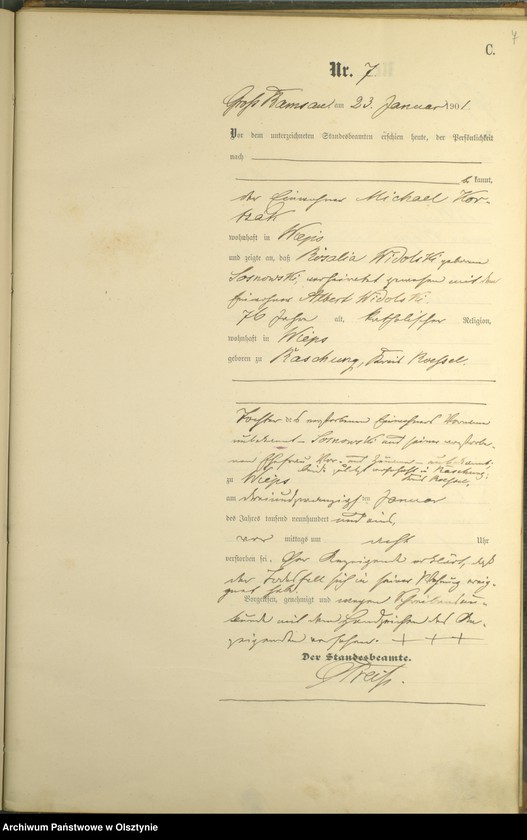 7
C.
Nr. 7
Groß Ramsau am 23. Januar 1901.
Vor dem unterzeichneten Standesbeamten erschien heute, der Persönlichkeit
nach
be kannt,
der Einwohner Michael Kor-
tzak
wohnhaft in Wieps
und zeigte an, daß Rosalia Widolski geborene
Sosnowski, verheiratet gewesen mit dem
Einwohner Albert Widolski.
76 Jahre alt, katholischer Religion,
wohnhaft in Wieps
geboren zu Raschung, Kreis Roessel.
Tochter des verstorbenen Einwohners Vorname
unbekannt Sosnowski und seiner verstorbe-
nen Ehefrau Vor- und Zuname unbekannt
beide zuletzt wohnhaft in Raschung
zu Wieps Kreis Roessel,
am dreiundzwanzigsten Januar
des Jahrs tausend neunhundert und eins,
vor mittags um acht Uhr
verstorben sei. Der Anzeigende erklärt, daß
der Todesfall sich in seiner Wohnung ereig-
net hat.
Vorgelesen, genehmigt und wegen Schreibensun-
kunde mit dem Handzeichen des An-
zeigenden versehen. + + +
Der Standesbeamte.
Archiwum Państwowe w Olsztynie